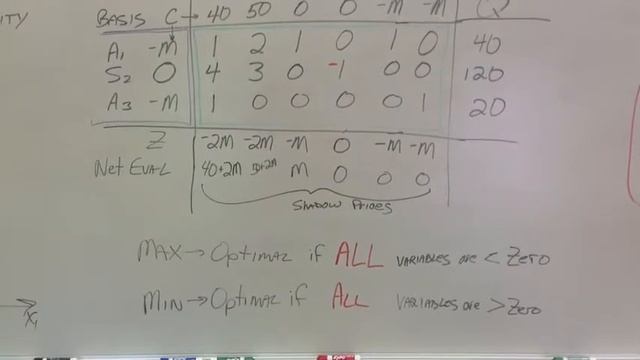 ITY
BASIS C → 40 50 0 0 -M -M Q
A1 -M 1 2 1 0 1 0 40
S2 0 4 3 0 -1 0 0 120
A3 -M 1 0 0 0 0 1 20
Z -2M -2M -M 0 -M -M
Net Eval 40+2M 50+2M M 0 0 0
Shadow Prices
MAX → Optimal if ALL variables are < Zero
MIN → Optimal if ALL variables are > Zero
X1